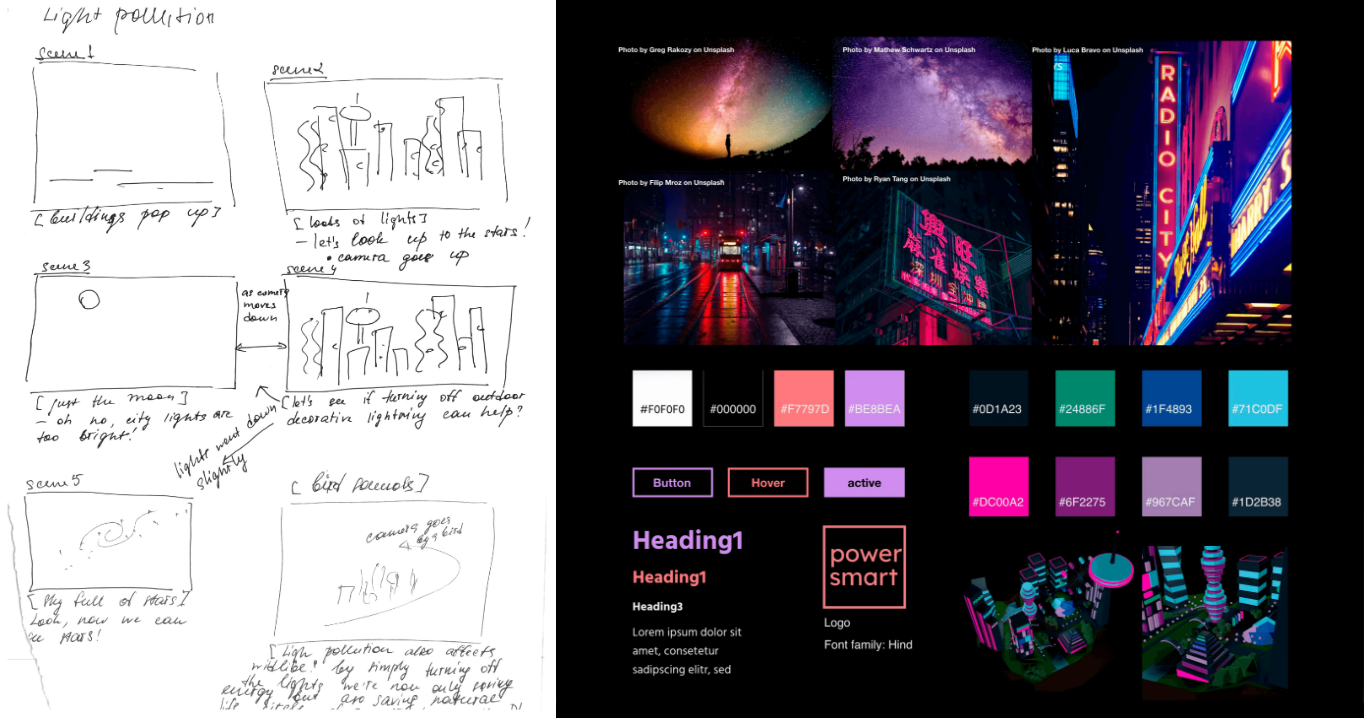 Light pollution
scene 1
[buildings pop up]
scene2
[loads of lights]
– let's look up to the stars!
• camera goes up
scene 3
[just the moon]
– oh no, city lights are
too bright!
as camera
moves
down
scene 4
[let's see if turning off outdoor
decorative lightning can help?
lights went down
slightly
scene 5
[sky full of stars]
Look, now we can
stars!
[bird sounds]
camera goes
bird
[Ligh pollution also affects
wildlife! by simply turning off
the lights we're not only saving
energy but are saving natural
Photo by Greg Rakozy on Unsplash
Photo by Mathew Schwartz on Unsplash
Photo by Luca Bravo on Unsplash
Photo by Filip Mroz on Unsplash
Photo by Ryan Tang on Unsplash
RADIO CITY
興旺
麻雀娛樂
深圳
#F0F0F0
#000000
#F7797D
#BE8BEA
#0D1A23
#24886F
#1F4893
#71C0DF
#DC00A2
#6F2275
#967CAF
#1D2B38
Button
Hover
active
Heading1
Heading1
Heading3
Lorem ipsum dolor sit
amet, consetur
sadipscing elitr, sed
power
smart
Logo
Font family: Hind